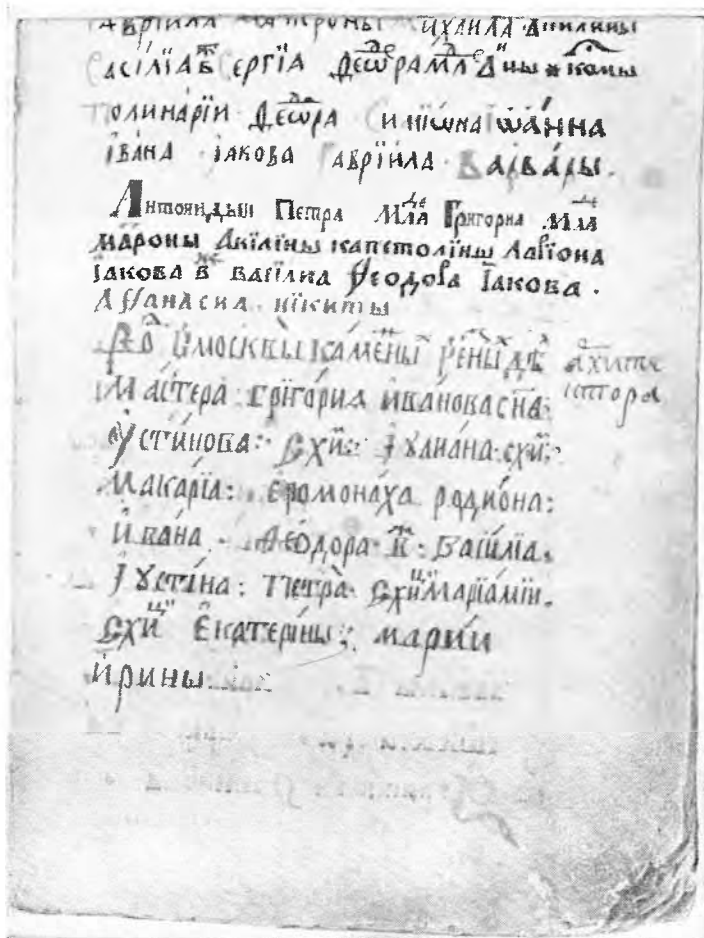 Гаврїила матроны михаила акилины
Васїлїа в҃ Сергїа Ѳеѡра мл҃д
полинарїи Ѳеѡра Симиѡна Іѡа́нна
іва́на іакова Гаврїила Варва́ры.
Петра мл҃а Григориа мл҃а
ма́роны Акїли́ны капетолїны Ларїона
іакова в҃ василиа Ѳеодора їакова.
Аѳанасиа. никиты
Ро҃ й москвы̀ ка́мены дѣ ахите
Ма́стера: григо́риа ива́нова сн҃а: ктора
Ꙋсти́нова: схи҃: Іꙋлиа́на схи҃:
Мака́рїа: еромона́ха родио́на:
и́ва́на. Ѳео́дора в҃: Васи́лїа.
Іꙋсти́на: Петра̀ схи҃ Марїамїи.
Схи҃ Екатери́ны; марии
и́рины